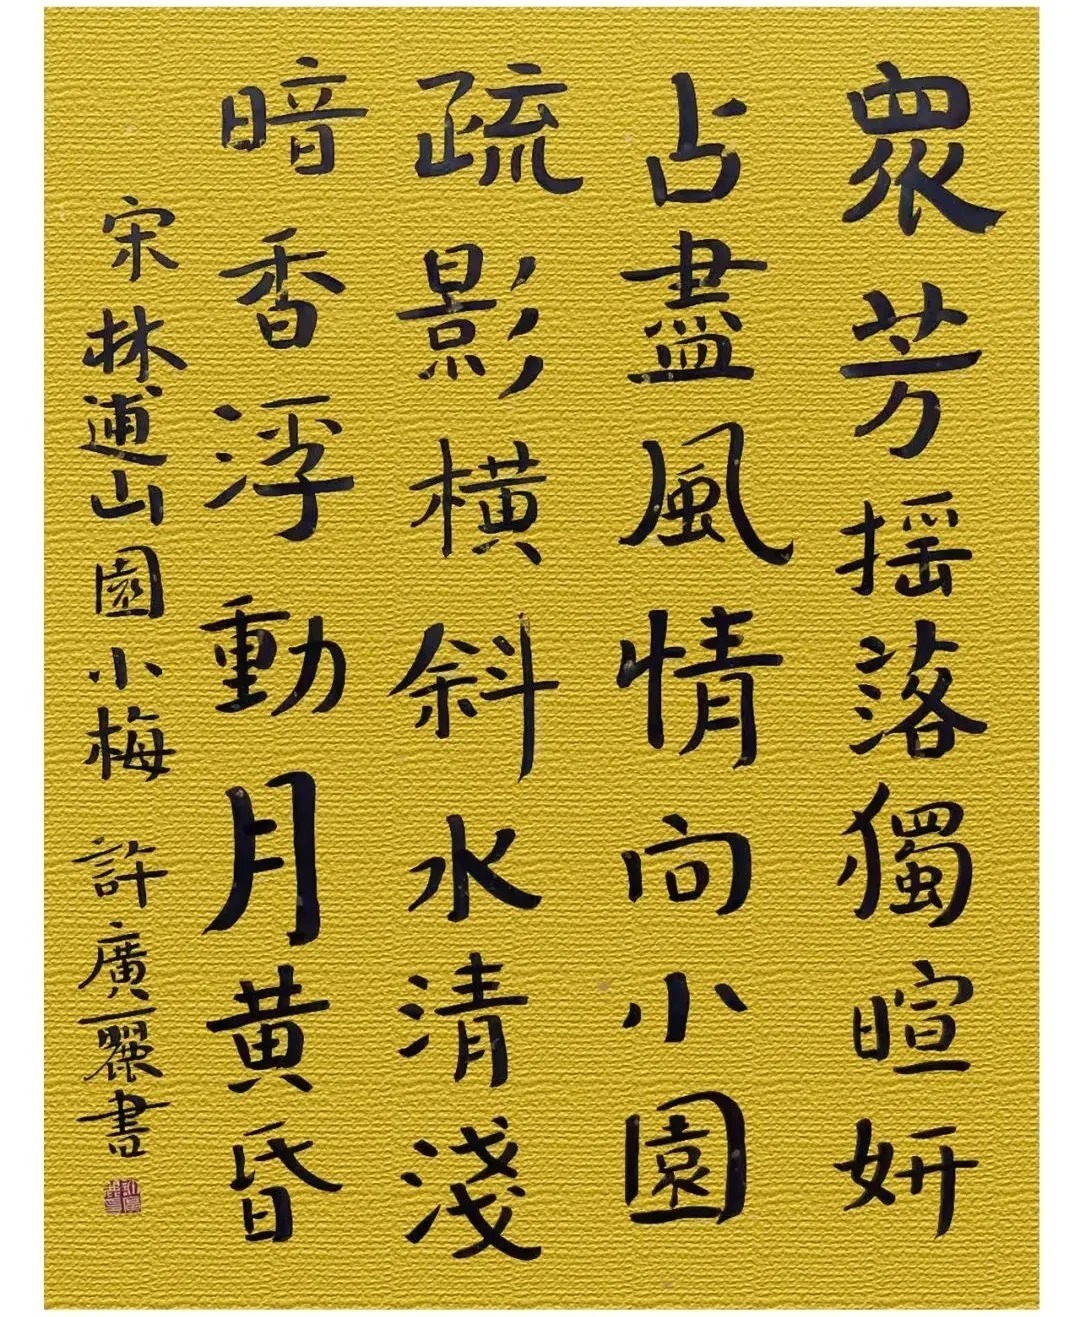 眾芳揺落獨暄妍
占盡風情向小園
疏影橫斜水清淺
暗香浮動月黃昏
宋林逋山園小梅 許廣麗書